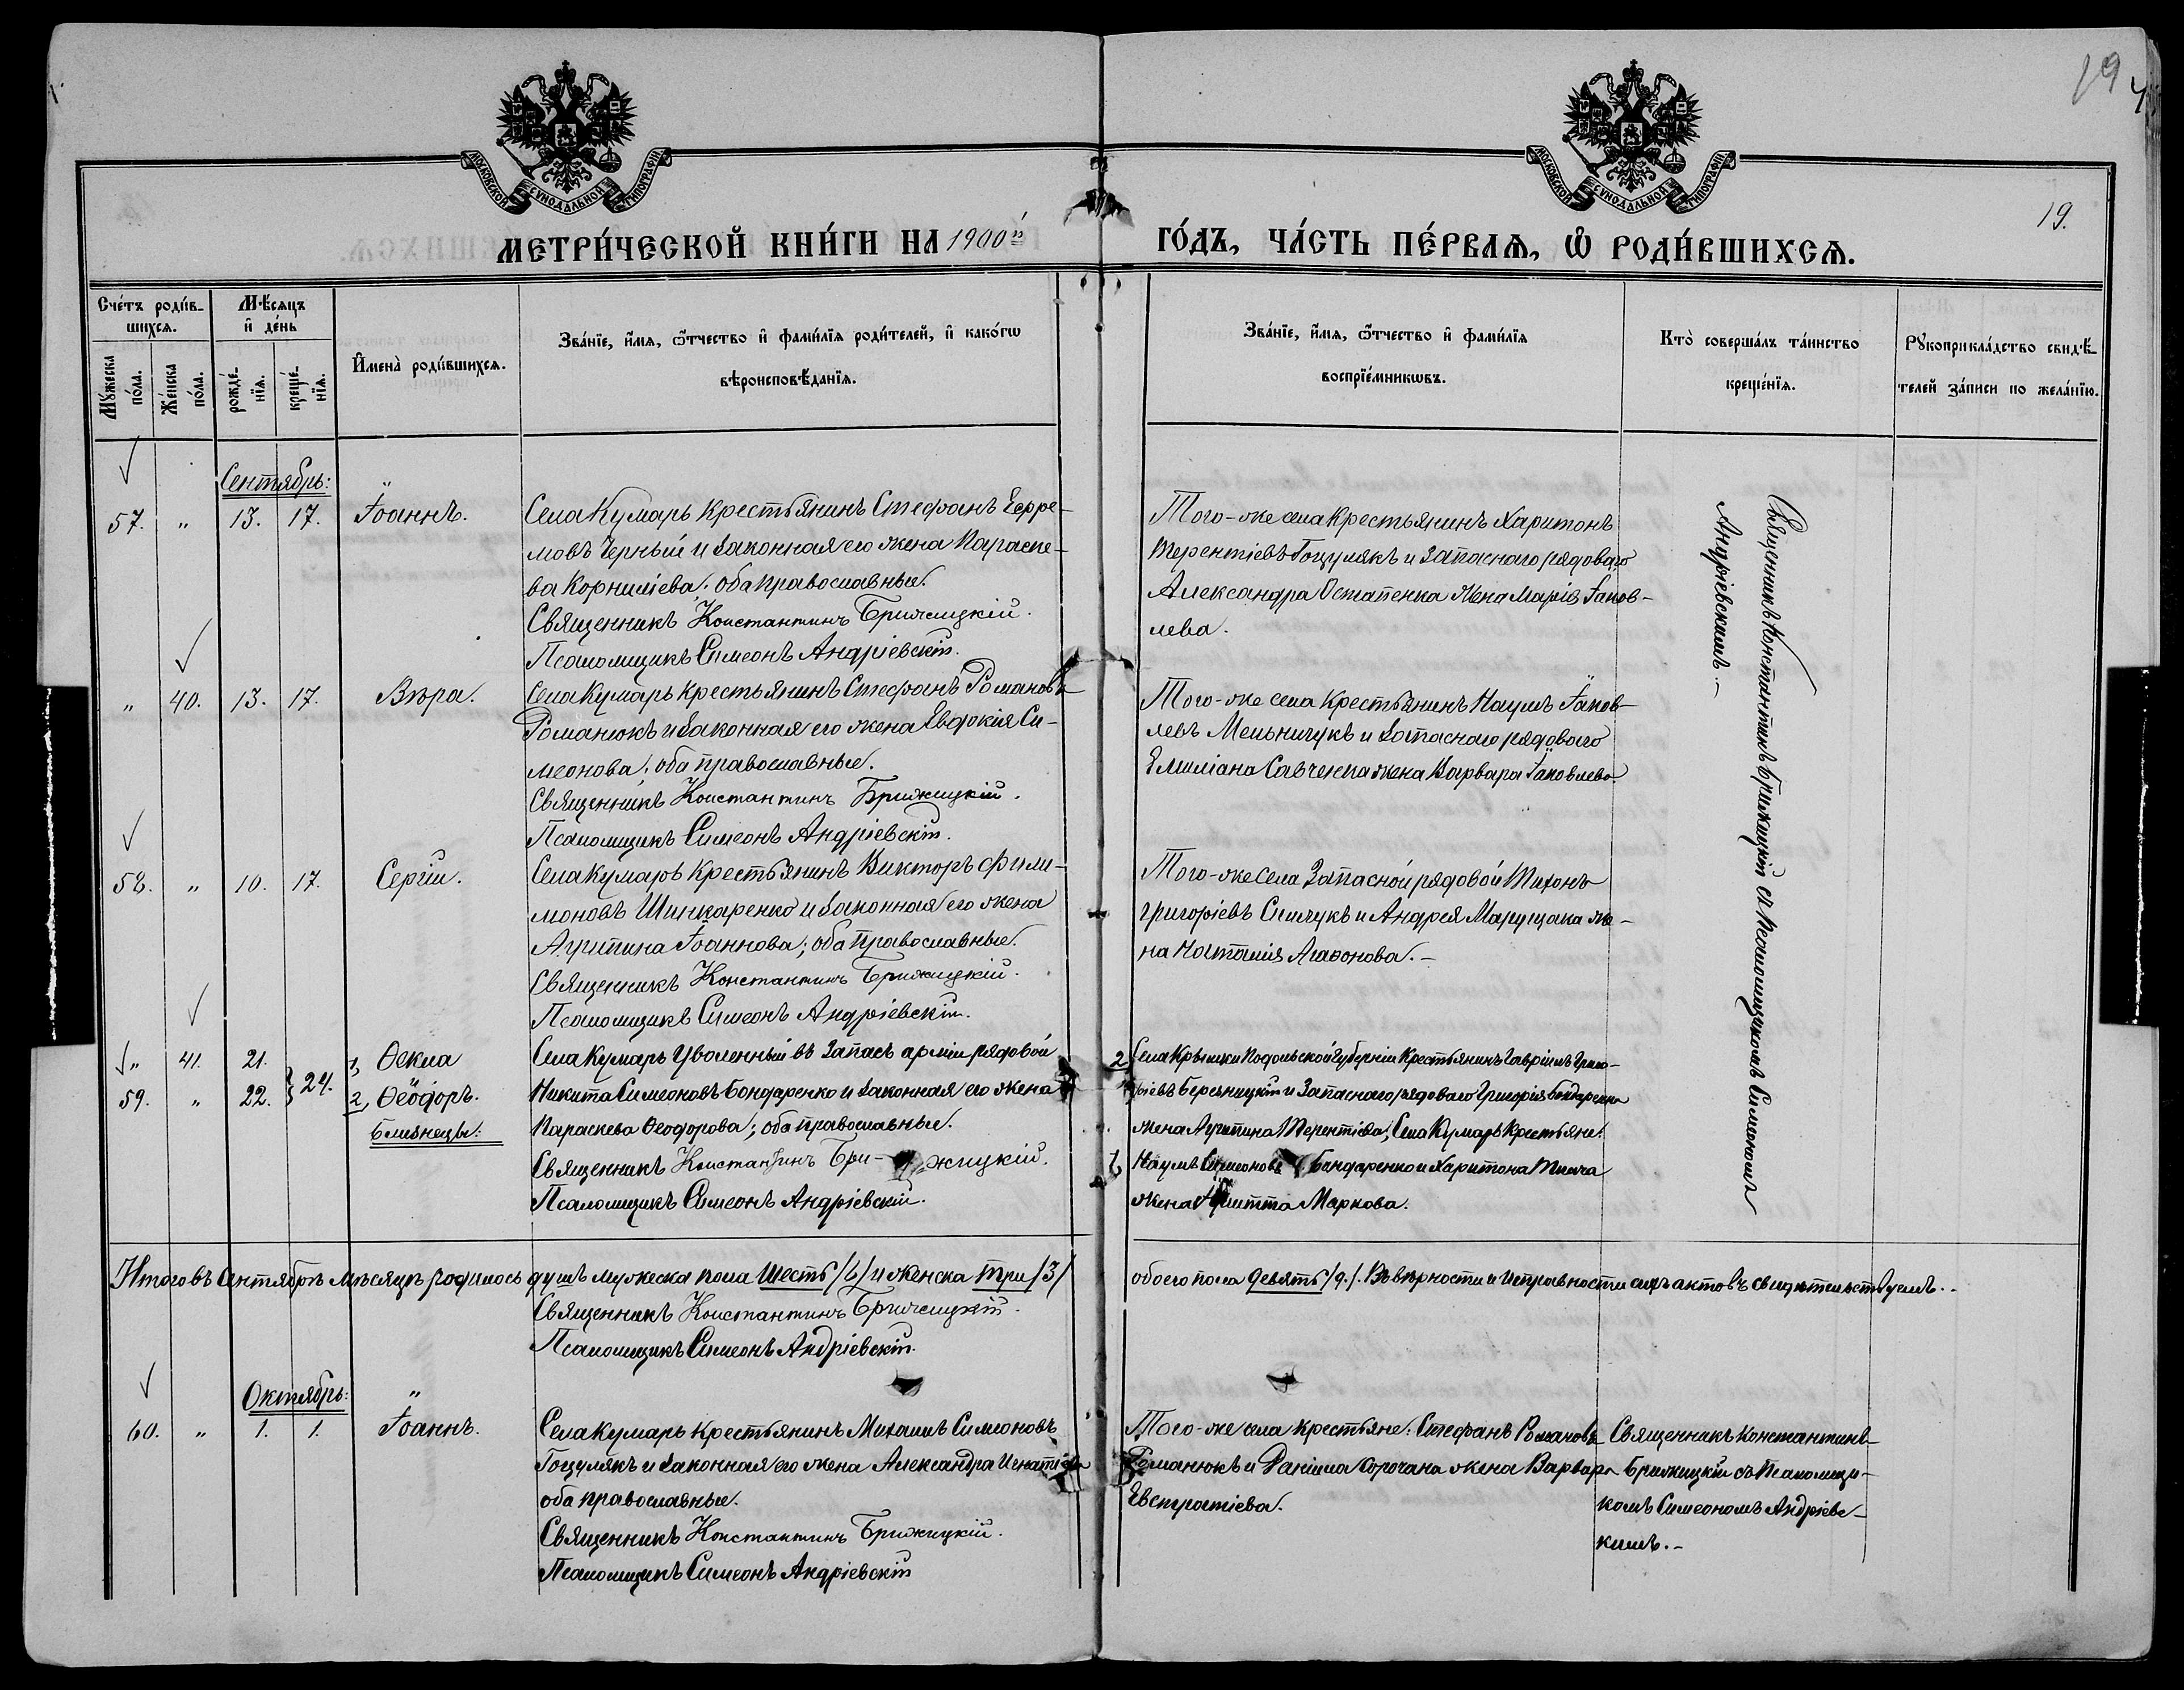 19
МОСКОВСКОЙ СѴНОДАЛЬНОЙ ТИПОГРАФІИ.
МОСКОВСКОЙ СѴНОДАЛЬНОЙ ТИПОГРАФІИ.
19.
МЕТРИ́ЧЕСКОЙ КНИ́ГИ НА 1900й
ГО́ДЪ, ЧА́СТЬ ПЕ́РВАѦ, Ѡ҆ РОДИ́ВШИХСѦ.
Сче́тъ роди́в-
шихсѧ.
Мѣ́сѧцъ
и҆ де́нь
Мꙋ́жеска
по́ла.
Же́нска
по́ла.
рожде́-
нїѧ.
креще́-
нїѧ.
И҆мена̀ роди́вшихсѧ.
Зва́нїе, и҆́мѧ, ѻ҆́тчество и҆ фами́лїѧ роди́телей, и҆ како́гѡ
вѣроисповѣ́данїѧ.
Зва́нїе, и҆́мѧ, ѻ҆́тчество и҆ фами́лїѧ
воспрїе́мникѡвъ.
Кто̀ соверша́лъ та́инство
креще́нїѧ.
Рꙋкоприкла́дство свидѣ́-
телей за́писи по жела́нїю.
Сентябрь:
57. " 13. 17. Іоаннъ.
Села Кумарь крестьянинъ Стефанъ Ефре-
мовъ Черный и законная его жена Параске-
ва Корниліева; оба православные.
Священникъ Константинъ Брижицкій.
Псаломщикъ Симеонъ Андріевскій.
Того-же села крестьянинъ Харитонъ
Терентіевъ Гоцулякъ и запаснаго рядоваго
Александра Остапенка жена Марія Іаков-
лева.
" 40. 13. 17. Вѣра.
Села Кумарь крестьянинъ Стефанъ Романовъ
Романюкъ и законная его жена Евдокія Си-
меонова; оба православные.
Священникъ Константинъ Брижицкій.
Псаломщикъ Симеонъ Андріевскій.
Того-же села крестьянинъ Наумъ Іаков-
левъ Мельничукъ и запаснаго рядоваго
Емиліана Савченка жена Варвара Іаковлева.
58. " 10. 17. Сергій.
Села Кумарь крестьянинъ Викторъ Фили-
моновъ Шинкаренко и законная его жена
Агрипина Іоаннова; оба православные.
Священникъ Константинъ Брижицкій.
Псаломщикъ Симеонъ Андріевскій.
Того-же села запасной рядовой Тихонъ
Григоріевъ Симчукъ и Андрея Марущака же-
на Наталія Агаѳонова.-
" 41. 21. 24. 1, Ѳекла
59. " 22. 2, Ѳеодоръ.
Близнецы:
Села Кумарь уволенный въ запасъ арміи рядовой
Никита Симеоновъ Бондаренко и законная его жена
Параскева Ѳеодорова; оба православные.
Священникъ Константинъ Бри-жицкій.
Псаломщикъ Симеонъ Андріевскій.
2, Села Крынички Подольской губерніи крестьянинъ Гавріилъ Григо-
ріевъ Березницкій и запаснаго рядоваго Григорія Бондаренка
жена Агрипина Терентіева; Села Кумарь крестьяне:
1, Наумъ Симеоновъ Бондаренко и Харитона
жена Маркова.
Священникъ Константинъ Брижицкій съ Псаломщикомъ Симеономъ
Андріевскимъ.-
Итого въ Сентябрѣ мѣсяцѣ родилось душъ мужеска пола шесть /6/ и женска три /3/
обоего пола девять /9/. Въ вѣрности и исправности сихъ актовъ свидѣтельствуемъ.-
Священникъ Константинъ Брижицкій.
Псаломщикъ Симеонъ Андріевскій.
Октябрь:
60. " 1. 1. Іоаннъ.
Села Кумарь крестьянинъ Михаилъ Симеоновъ
Гоцулякъ и законная его жена Александра Игнатіева
оба православные.
Священникъ Константинъ Брижицкій.
Псаломщикъ Симеонъ Андріевскій
Того-же села крестьяне: Стефанъ Романовъ
Романюкъ и Даніила Сорочана жена Варвара
Евстратіева.
Священникъ Константинъ
Брижицкій съ Псаломщи-
комъ Симеономъ Андріевс-
кимъ.-